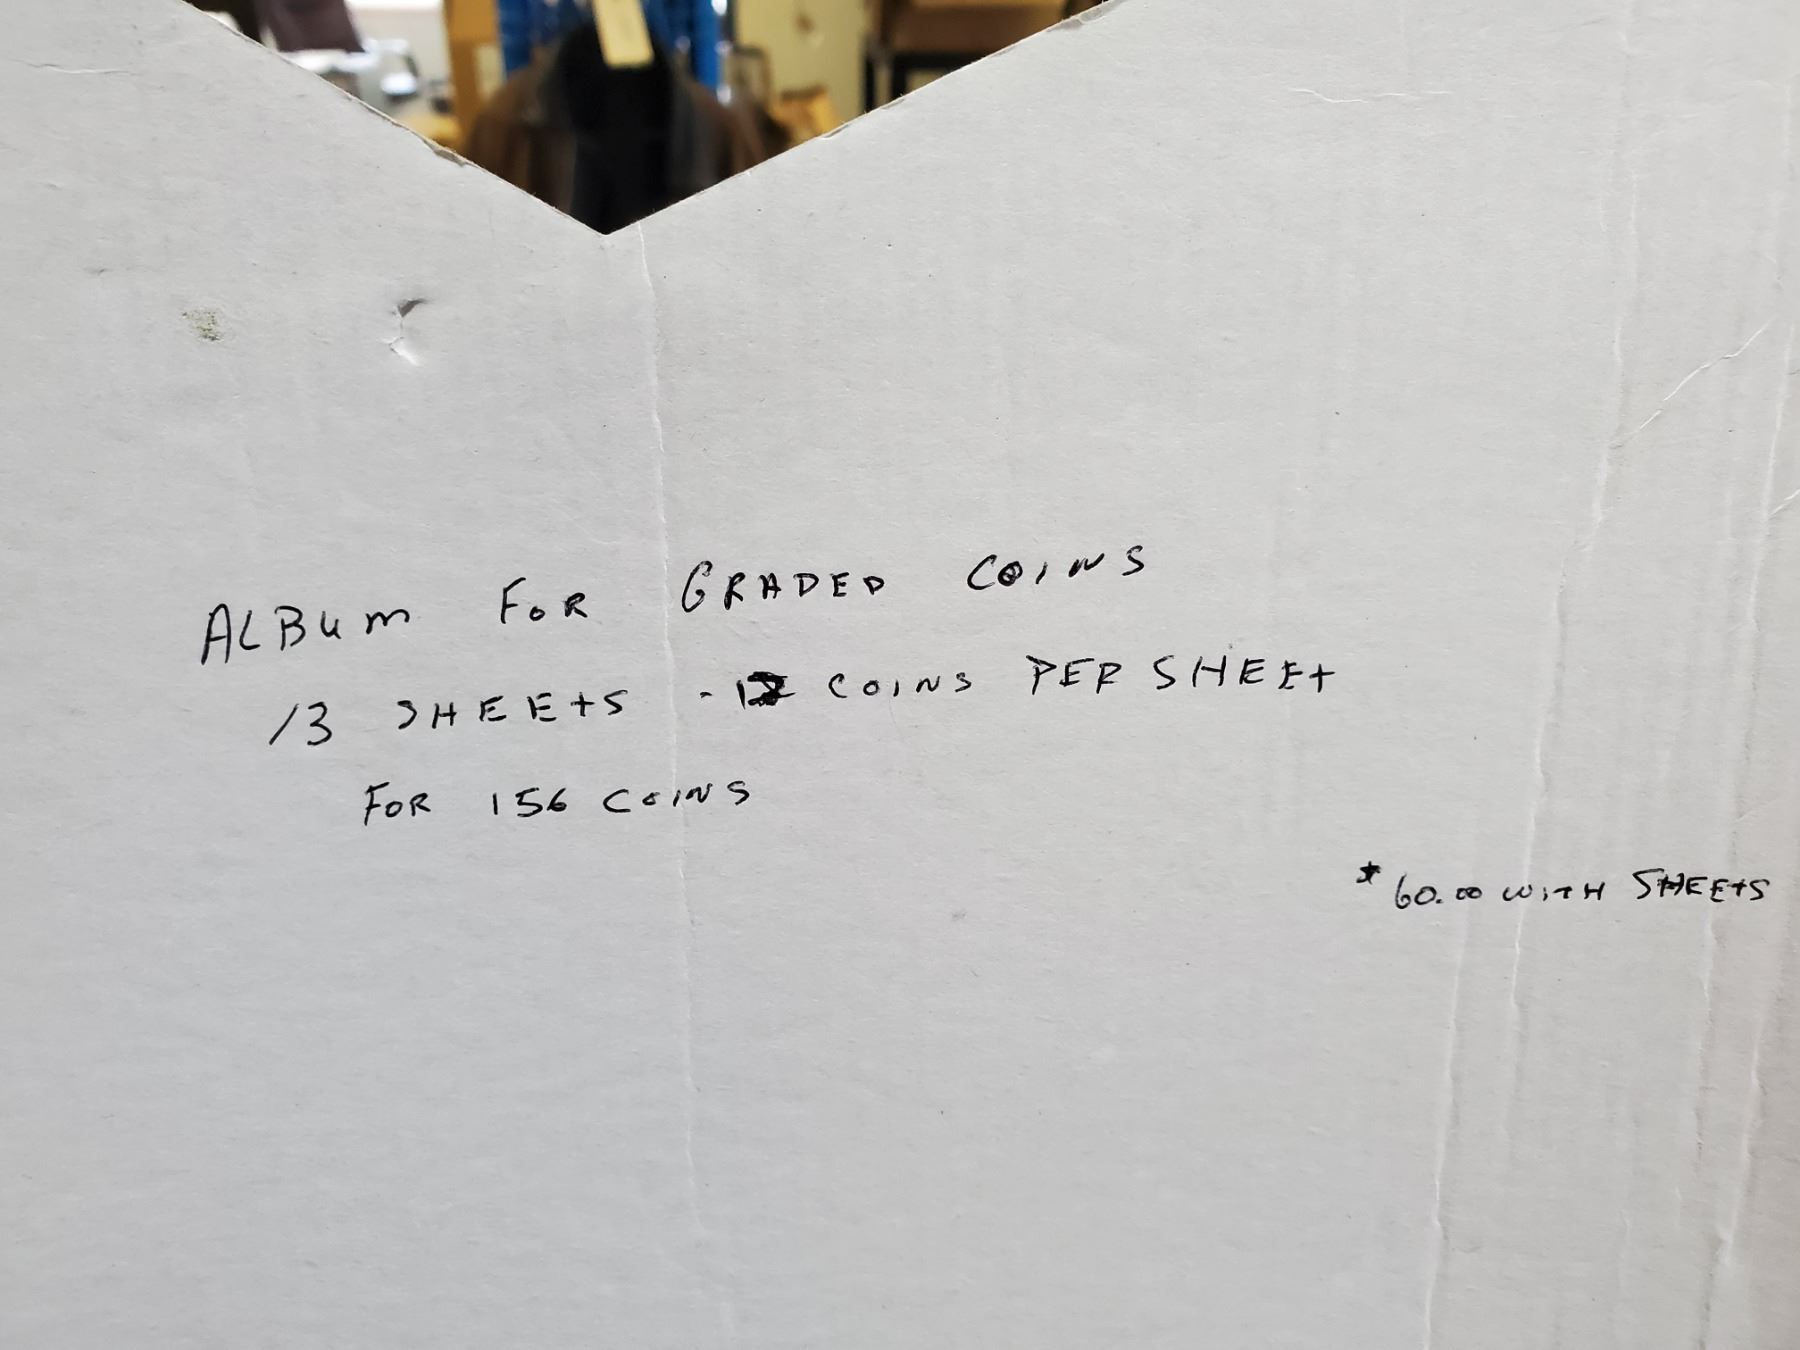 ALBUM FOR GRADED COINS
13 SHEETS - 12 COINS PER SHEET
FOR 156 COINS
* 60.00 WITH SHEETS